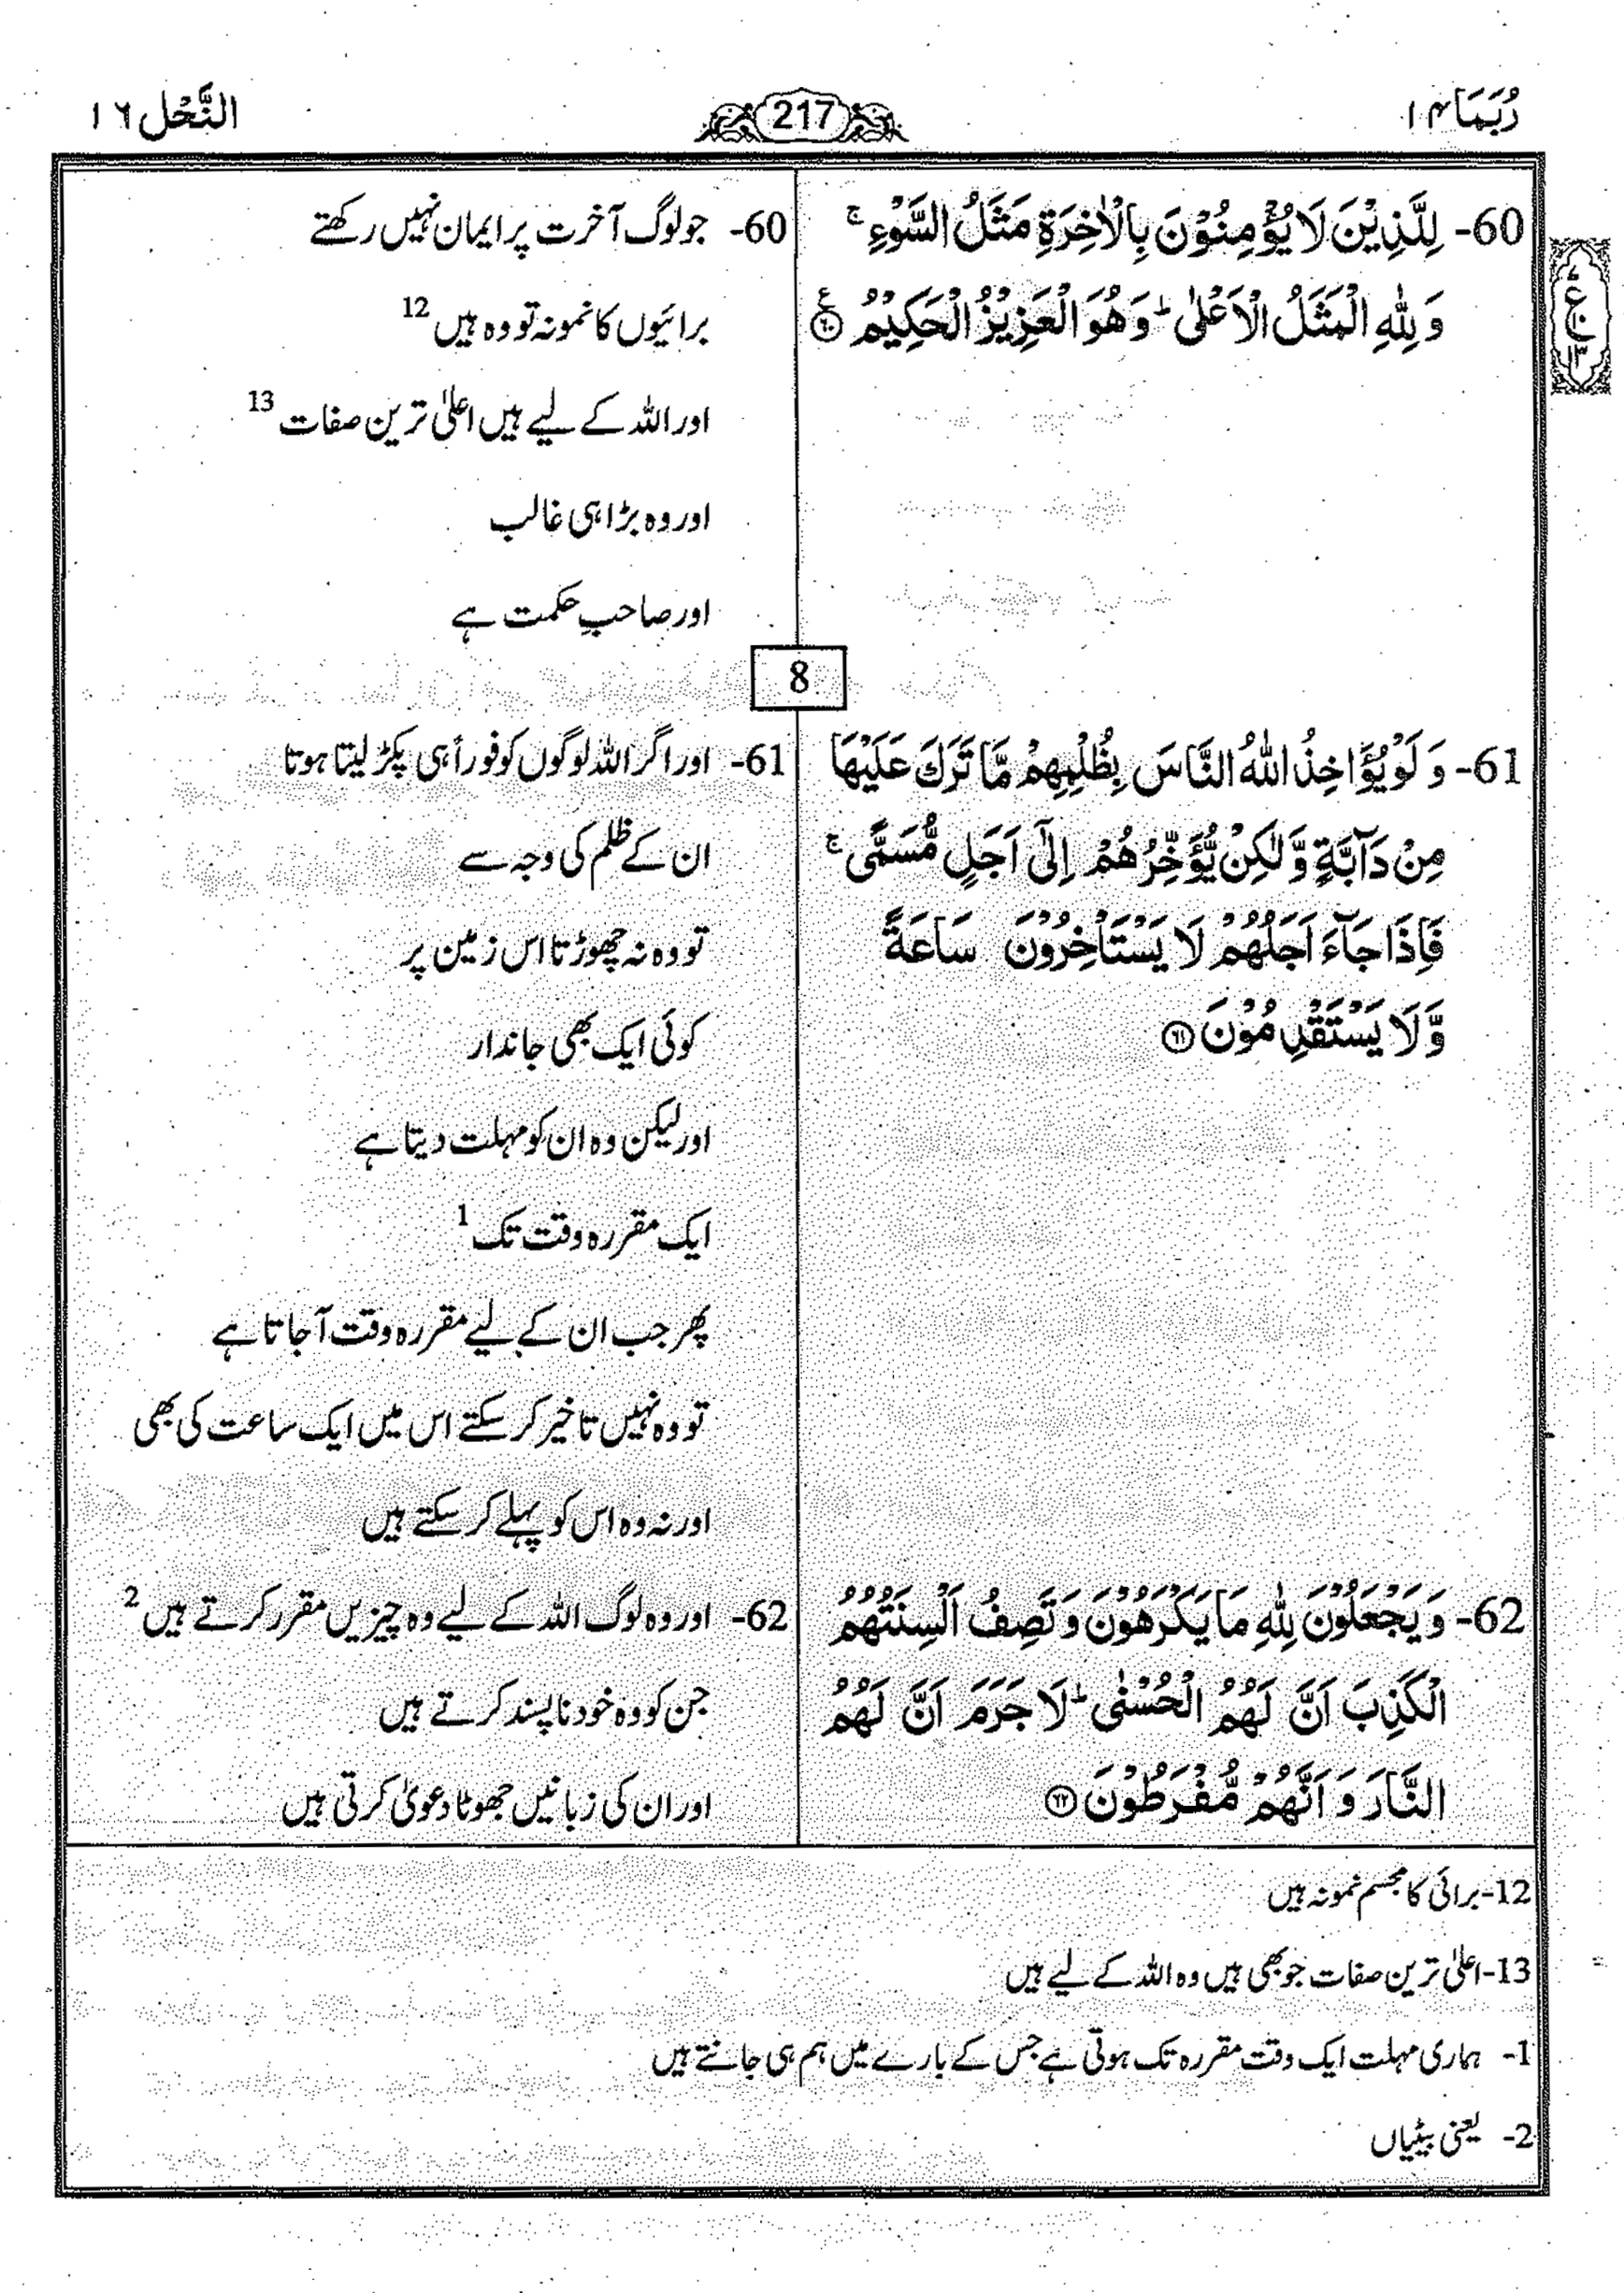 رُبَمَا ۱۴
217
النَّحْل ۱۶
60- لِلَّذِيْنَ لَا يُؤْمِنُوْنَ بِالْاٰخِرَةِ مَثَلُ السَّوْءِ ۚ
وَ لِلّٰهِ الْمَثَلُ الْاَعْلٰى ؕ وَ هُوَ الْعَزِيْزُ الْحَكِيْمُ ۠﴿۶۰﴾
ع
۱۳
60- جو لوگ آخرت پر ایمان نہیں رکھتے
برائیوں کا نمونہ تو وہ ہیں 12
اور اللہ کے لیے ہیں اعلیٰ ترین صفات 13
اور وہ بڑا ہی غالب
اور صاحبِ حکمت ہے
8
61- وَ لَوْ يُؤَاخِذُ اللّٰهُ النَّاسَ بِظُلْمِهِمْ مَّا تَرَكَ عَلَيْهَا
مِنْ دَآبَّةٍ وَّ لٰكِنْ يُّؤَخِّرُهُمْ اِلٰۤى اَجَلٍ مُّسَمًّى ۚ
فَاِذَا جَآءَ اَجَلُهُمْ لَا يَسْتَاْخِرُوْنَ سَاعَةً
وَّ لَا يَسْتَقْدِمُوْنَ ﴿۶۱﴾
61- اور اگر اللہ لوگوں کو فوراً ہی پکڑ لیتا ہوتا
ان کے ظلم کی وجہ سے
تو وہ نہ چھوڑتا اس زمین پر
کوئی ایک بھی جاندار
اور لیکن وہ ان کو مہلت دیتا ہے
ایک مقررہ وقت تک 1
پھر جب ان کے لیے مقررہ وقت آجاتا ہے
تو وہ نہیں تاخیر کر سکتے اس میں ایک ساعت کی بھی
اور نہ وہ اس کو پہلے کر سکتے ہیں
62- وَ يَجْعَلُوْنَ لِلّٰهِ مَا يَكْرَهُوْنَ وَ تَصِفُ اَلْسِنَتُهُمُ
الْكَذِبَ اَنَّ لَهُمُ الْحُسْنٰى ؕ لَا جَرَمَ اَنَّ لَهُمُ
النَّارَ وَ اَنَّهُمْ مُّفْرَطُوْنَ ﴿۶۲﴾
62- اور وہ لوگ اللہ کے لیے وہ چیزیں مقرر کرتے ہیں 2
جن کو وہ خود ناپسند کرتے ہیں
اور ان کی زبانیں جھوٹا دعویٰ کرتی ہیں
12- برائی کا مجسم نمونہ ہیں
13- اعلیٰ ترین صفات جو بھی ہیں وہ اللہ کے لیے ہیں
1- ہماری مہلت ایک وقت مقررہ تک ہوتی ہے جس کے بارے میں ہم ہی جانتے ہیں
2- یعنی بیٹیاں